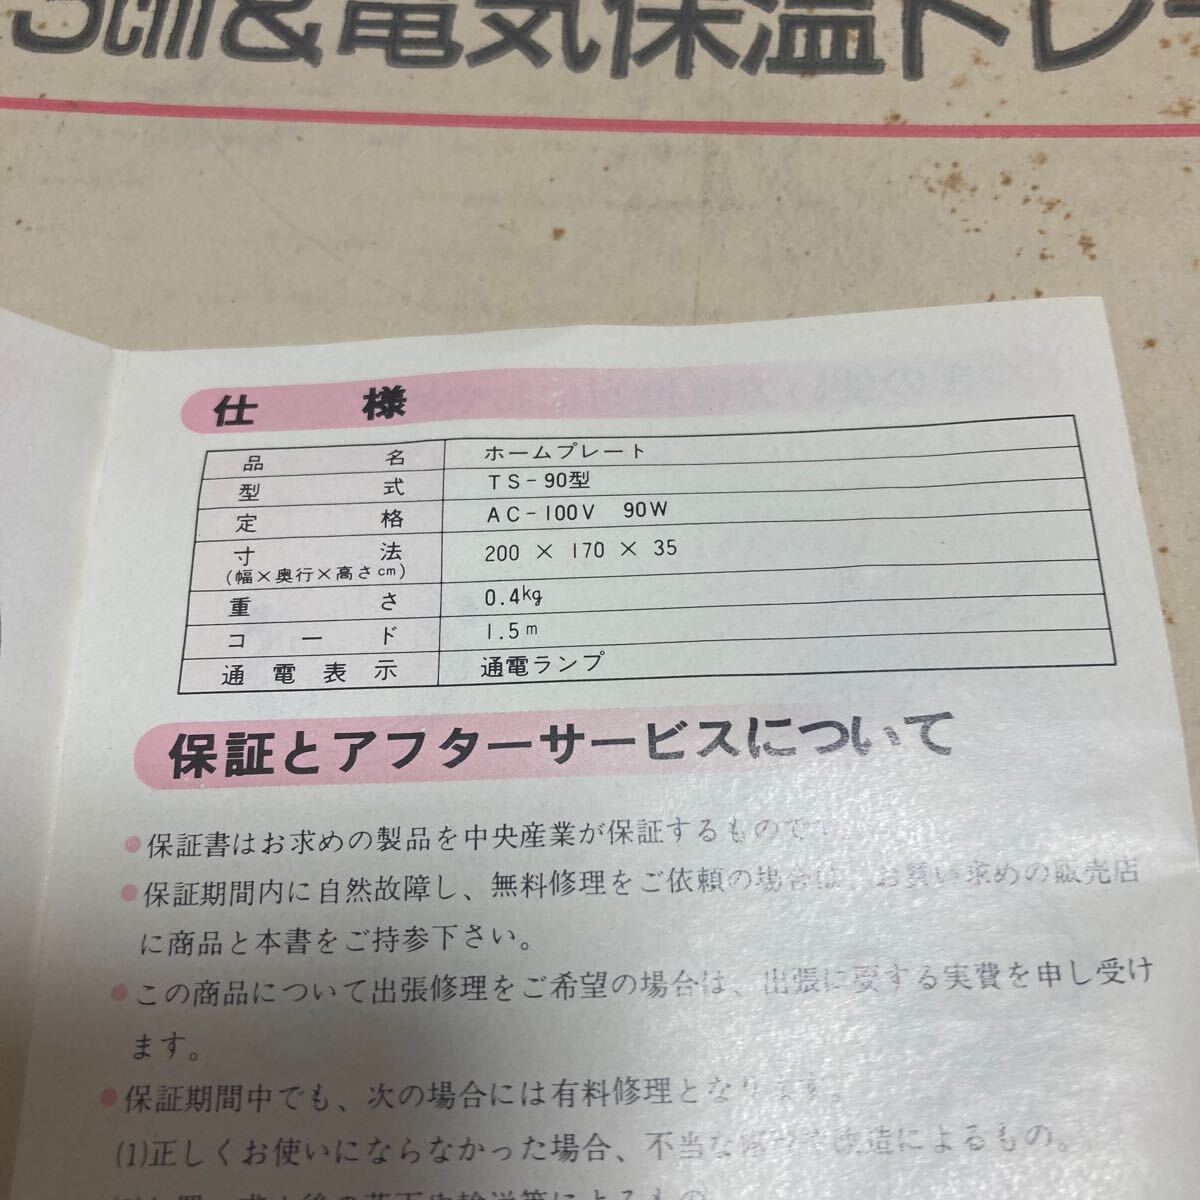 5cm&電気保温トレー
仕様
品名 ホームプレート
型式 TS-90型
定格 AC-100V 90W
寸法 200 × 170 × 35
(幅×奥行×高さcm)
重さ 0.4kg
コード 1.5m
通電表示 通電ランプ
保証とアフターサービスについて
●保証書はお求めの製品を中央産業が保証するものです。
●保証期間内に自然故障し、無料修理をご依頼の場合は、お買い求めの販売店
に商品と本書をご持参下さい。
●この商品について出張修理をご希望の場合は、出張に要する実費を申し受け
ます。
●保証期間中でも、次の場合には有料修理となります。
(1)正しくお使いにならなかった場合、不当な修理や改造によるもの。